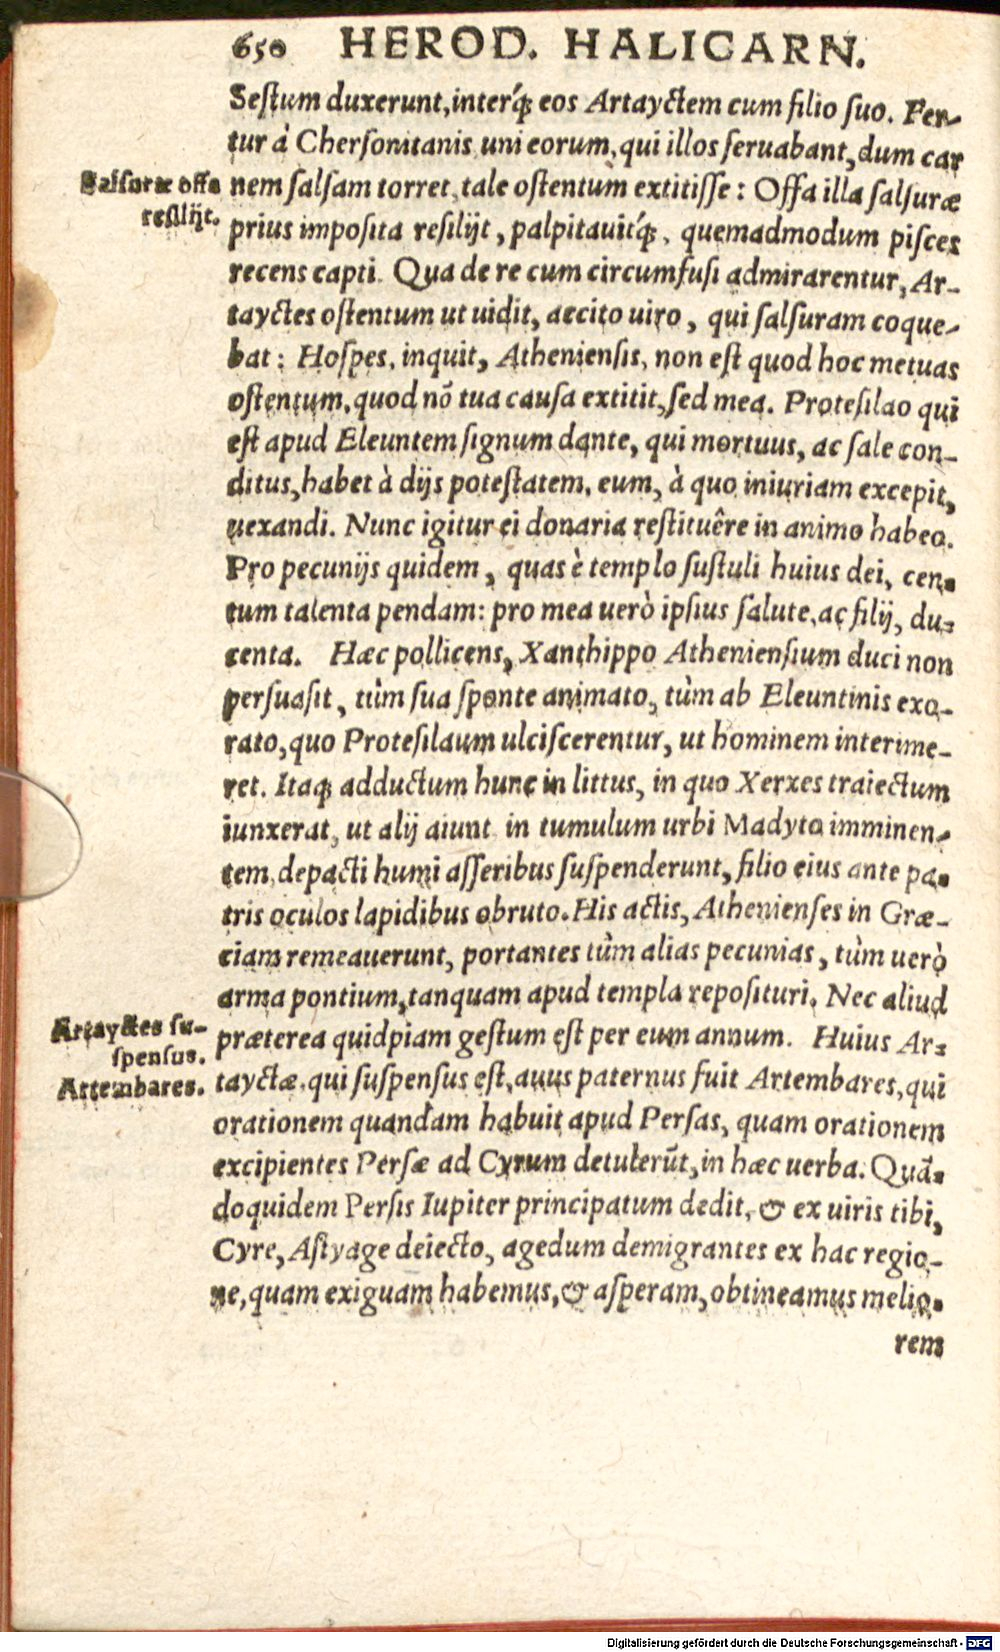 650 HEROD. HALICARN.
Sestum duxerunt, interq́; eos Artayctem cum filio suo. Fer-
tur à Chersonitanis uni eorum, qui illos seruabant, dum car
Salsuræ offa
resilijt.
nem salsam torret, tale ostentum extitisse: Offa illa salsuræ
prius imposita resilijt, palpitauitq́;, quemadmodum pisces
recens capti. Qua de re cum circumfusi admirarentur, Ar-
tayctes ostentum ut uidit, accito uiro, qui salsuram coque-
bat: Hospes, inquit, Atheniensis, non est quod hoc metuas
ostentum, quod nõ tua causa extitit, sed mea. Protesilao qui
est apud Eleuntem signum dante, qui mortuus, ac sale con-
ditus, habet à dijs potestatem, eum, à quo iniuriam excepit,
uexandi. Nunc igitur ei donaria restituêre in animo habeo.
Pro pecunijs quidem, quas è templo sustuli huius dei, cen-
tum talenta pendam: pro mea uerò ipsius salute, ac filij, du-
centa. Hæc pollicens, Xanthippo Atheniensium duci non
persuasit, tùm sua sponte animato, tùm ab Eleuntinis exo-
rato, quo Protesilaum ulciscerentur, ut hominem interime-
ret. Itaq; adductum hunc in littus, in quo Xerxes traiectum
iunxerat, ut alij aiunt in tumulum urbi Madyto imminen-
tem, depacti humi asseribus suspenderunt, filio eius ante pa-
tris oculos lapidibus obruto. His actis, Athenienses in Græ-
ciam remeauerunt, portantes tùm alias pecunias, tùm uerò
arma pontium, tanquam apud templa reposituri. Nec aliud
Artayctes su-
spensus.
Artembares.
præterea quidpiam gestum est per eum annum. Huius Ar-
tayctæ, qui suspensus est, auus paternus fuit Artembares, qui
orationem quandam habuit apud Persas, quam orationem
excipientes Persæ ad Cyrum detulerũt, in hæc uerba. Quã-
doquidem Persis Iupiter principatum dedit, & ex uiris tibi,
Cyre, Astyage deiecto, agedum demigrantes ex hac regio-
ne, quam exiguam habemus, & asperam, obtineamus melio-
rem
Digitalisierung gefördert durch die Deutsche Forschungsgemeinschaft - DFG